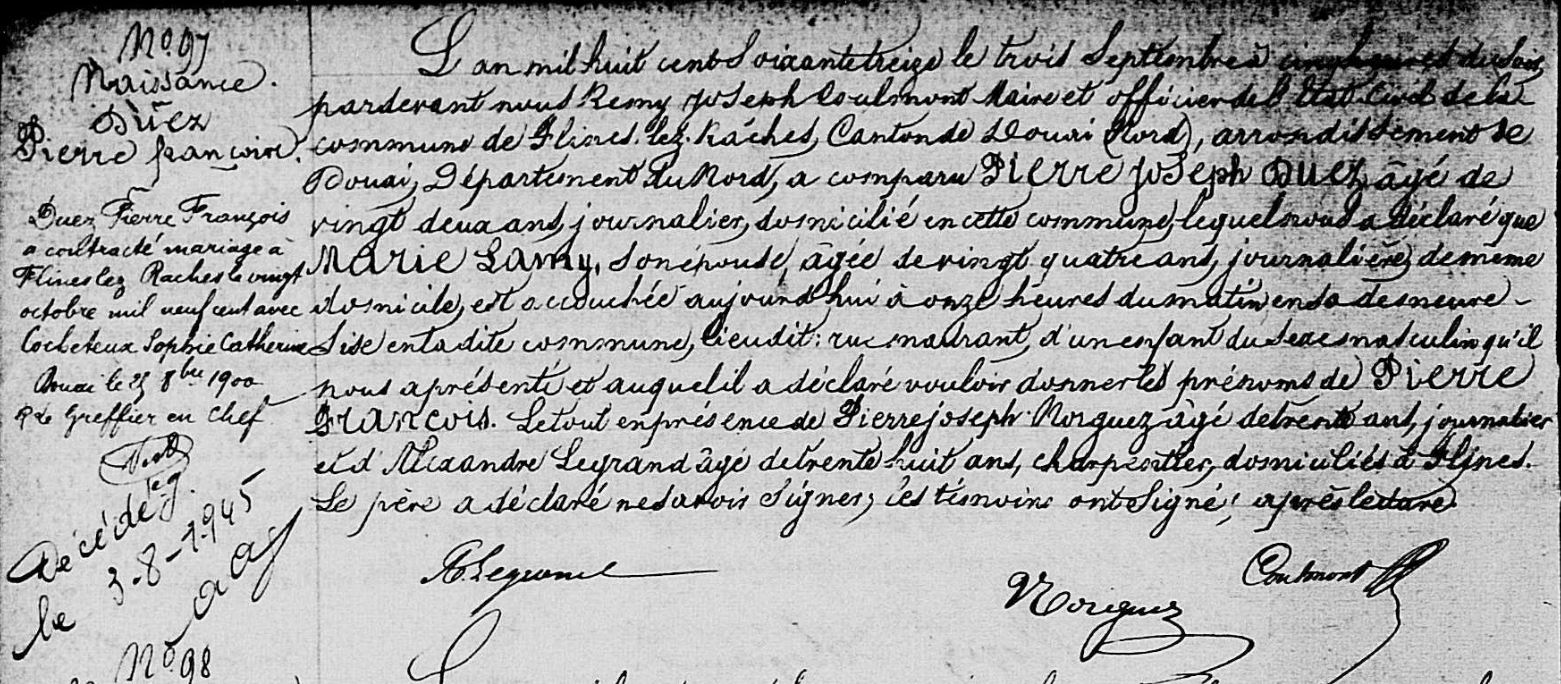 No 97
Naissance.
Duez
Pierre françois.
Duez Pierre François
a contracté mariage à
Flines lez Raches le vingt
octobre mil neuf cent avec
Cocheteux Sophie Catherine
Douai le 25 8bre 1900
Le Greffier en chef
Décédé
le 3-8-1945
L'an mil huit cent soixante treize le trois Septembre à cinq heures du soir,
pardevant nous Remy Joseph Coulmont Maire et officier de l'Etat-Civil de la
commune de Flines-lez-Râches, Canton de Douai (Nord), arrondissement de
Douai, Département du Nord, a comparu Pierre Joseph Duez, âgé de
vingt deux ans, journalier, domicilié en cette commune, lequel nous a déclaré que
Marie Lamy, son épouse, âgée de vingt quatre ans, journalière, de même
domicile, est accouchée aujourd'hui à onze heures du matin en sa demeure
sise en la dite commune, lieu dit: rue madrant, d'un enfant du sexe masculin qu'il
nous a présenté et auquel il a déclaré vouloir donner les prénoms de Pierre
François. Le tout en présence de Pierre joseph Noiguez âgé de trente ans, journalier
et d'Alexandre Legrand âgé de trente-huit ans, charpentier, domiciliés à Flines.
Le père a déclaré ne savoir signer; les témoins ont signé, après lecture.
A Legrand
Noiguez
Coulmont
No 98